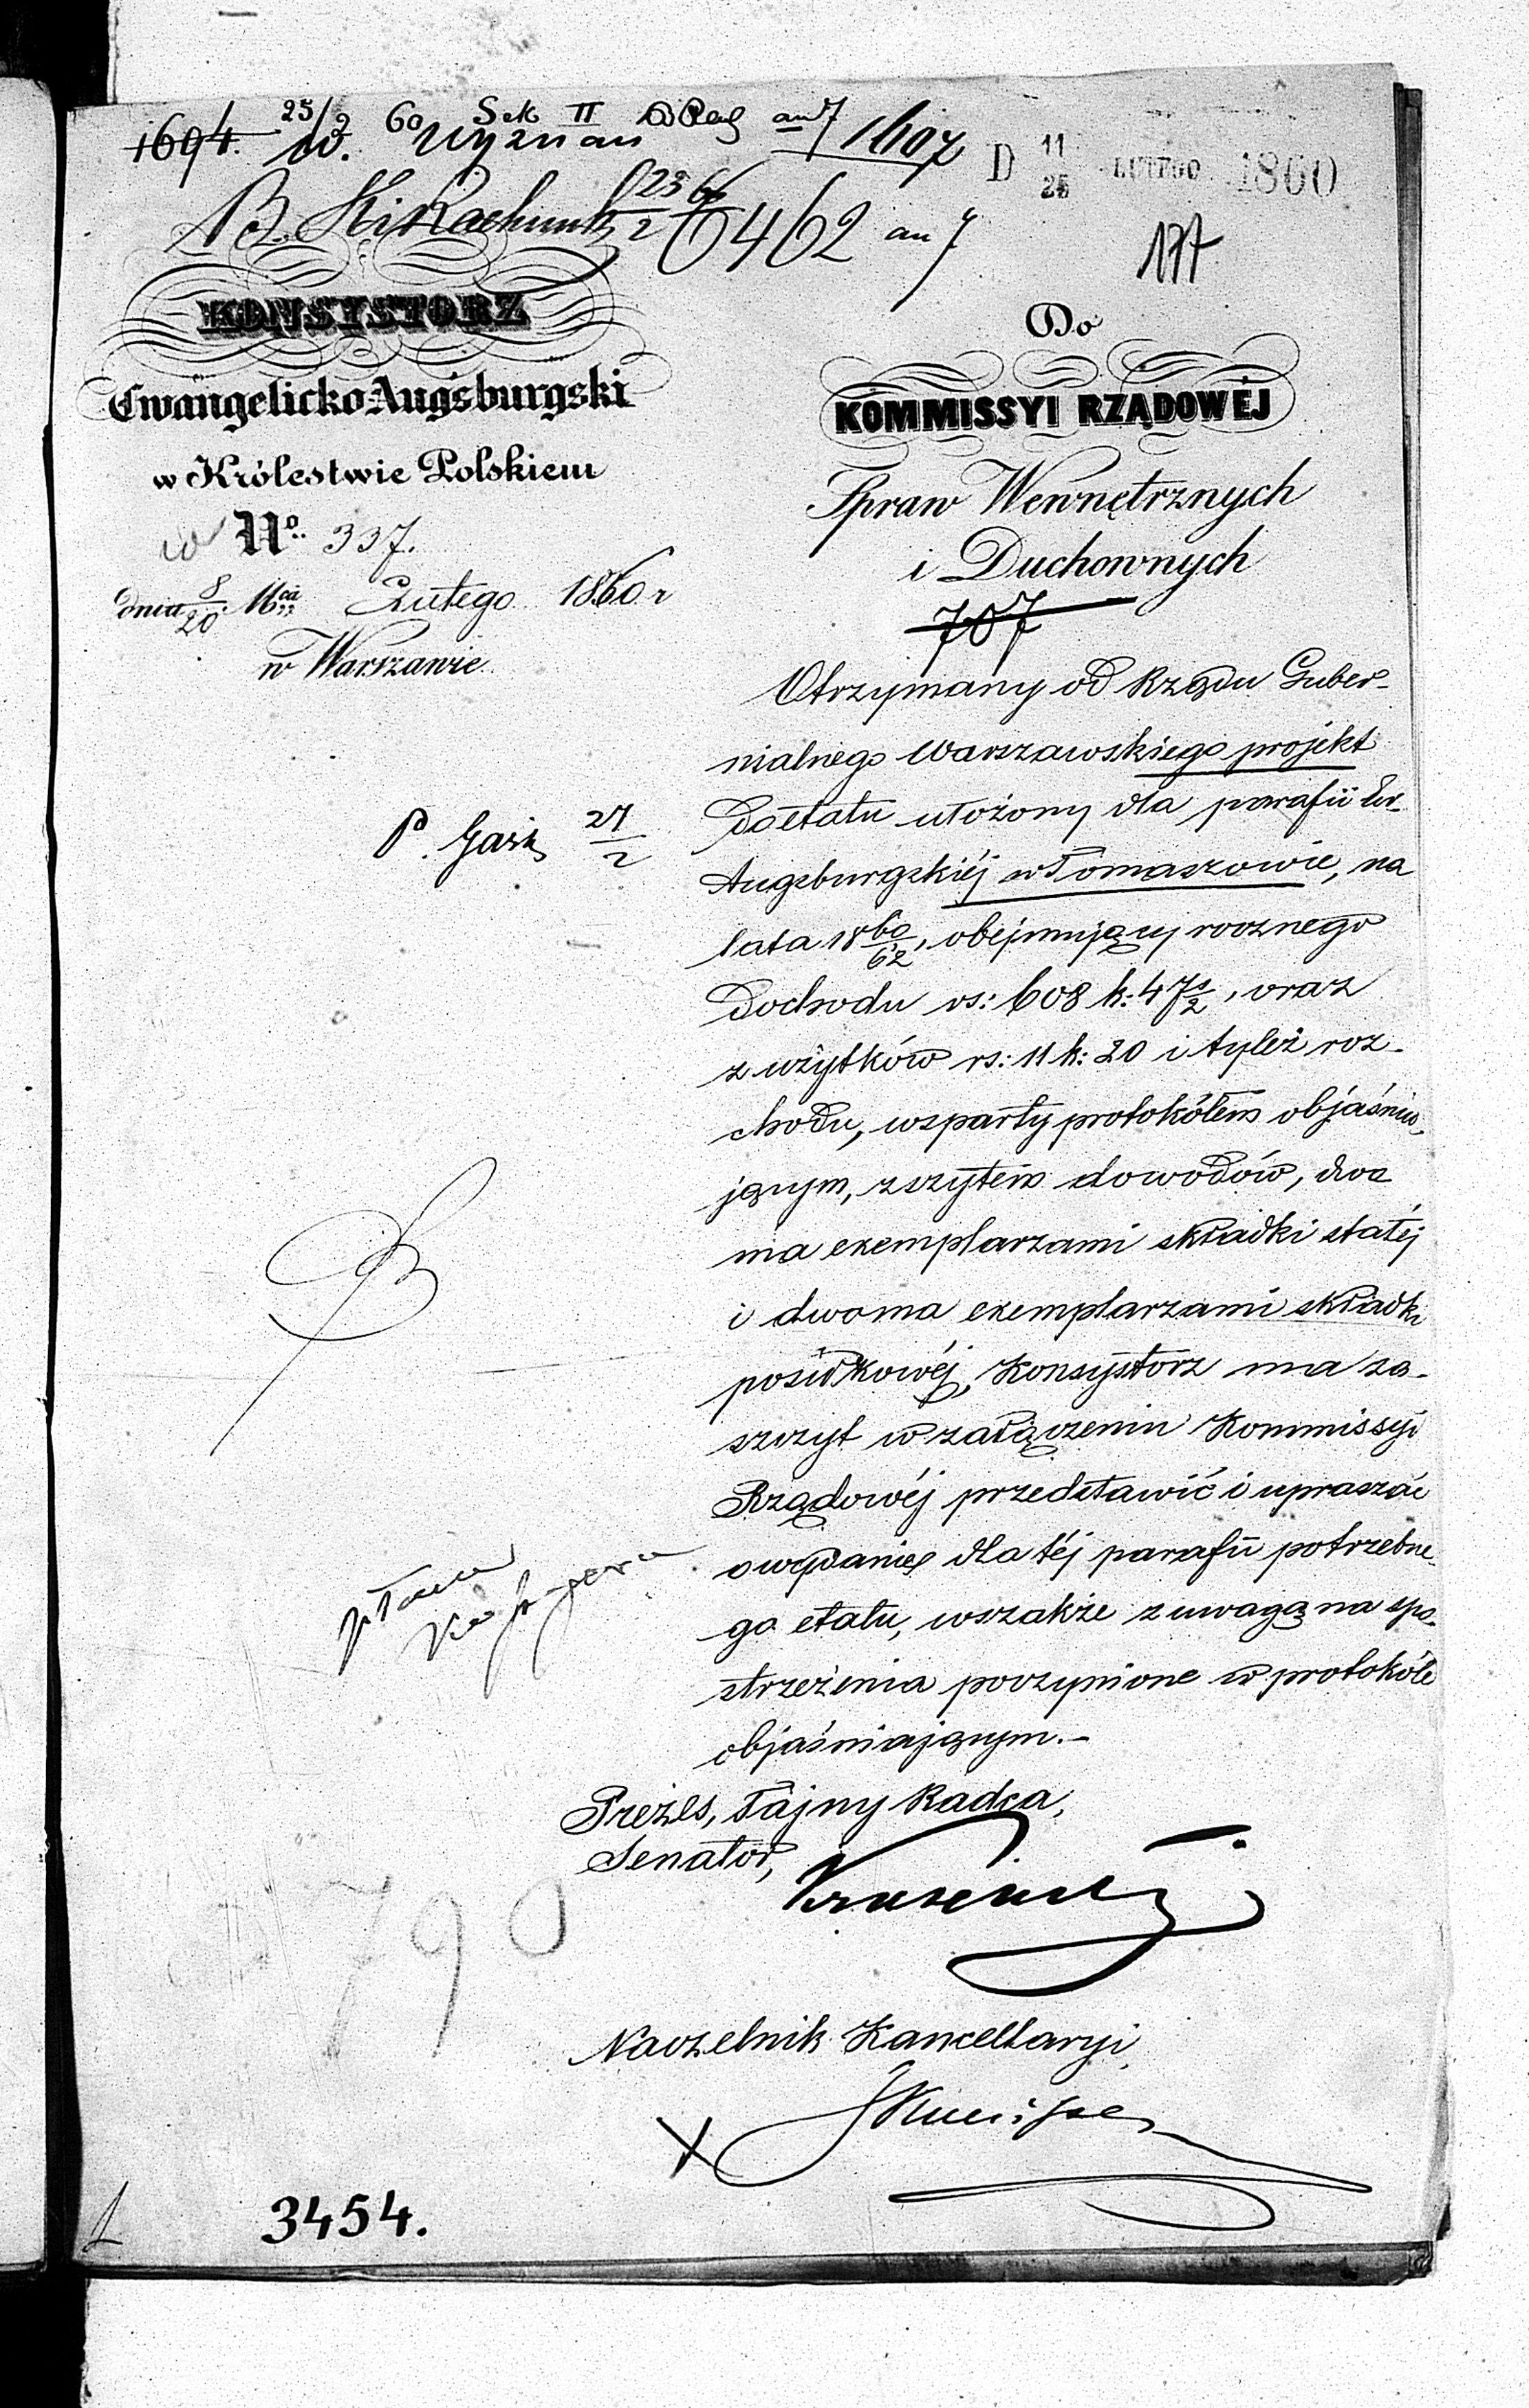 1694. 25/2 60 Sek II
W. Wyznań 1607
D 11/23 LUTEGO 1860
6462 an 7
177
KONSYSTORZ
Ewangelicko-Augsburgski
w Królestwie Polskiem
No. 337.
dnia 8/20 Mca Lutego 1860 r
w Warszawie
Do
KOMMISSYI RZĄDOWÉJ
Spraw Wewnętrznych
i Duchownych
707
P. 27/2
Otrzymany od Rządu Guber-
nialnego Warszawskiego projekt
do etatu ułożony dla parafii Ew-
Augsburgskiéj w Tomaszowie, na
lata 18 60/62, obejmujący rocznego
dochodu rs: 608 k: 47 1/2, oraz
z użytków rs: 11 k: 20 i tyleż roz-
chodu, wsparty protokółem objaśnia-
jącym, zszytem dowodów, dwo
ma exemplarzami składki stałéj
i dwoma exemplarzami składki
posiłkowéj, Konsystorz ma za-
szczyt w załączeniu Kommissyi
Rządowéj przedstawić i upraszać
o wydanie dla téj parafii potrzebne-
go etatu, wszakże z uwagą na spo-
strzeżenia poczynione w protokóle
objaśniającym.-
Prezes, Tajny Radca,
Senator,
790
Naczelnik Kancellaryi
3454.